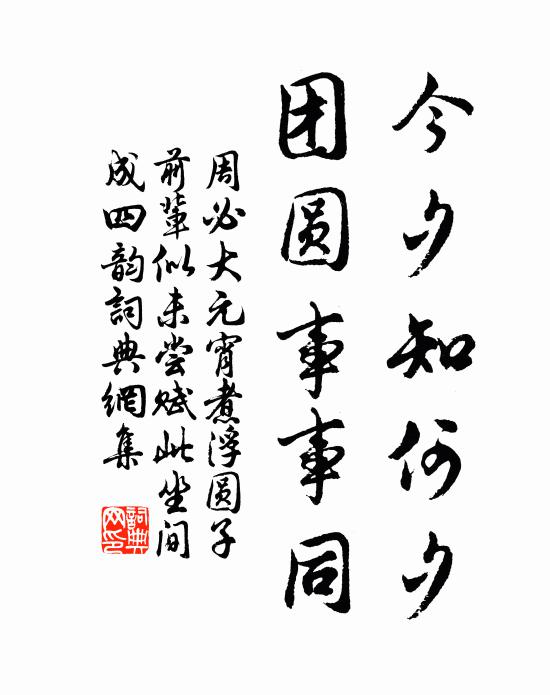 今夕知何夕
团圆事事同
周必大元宵煮浮圆子
前辈似未尝赋此坐间
成四韵詞典網集
詞典网印